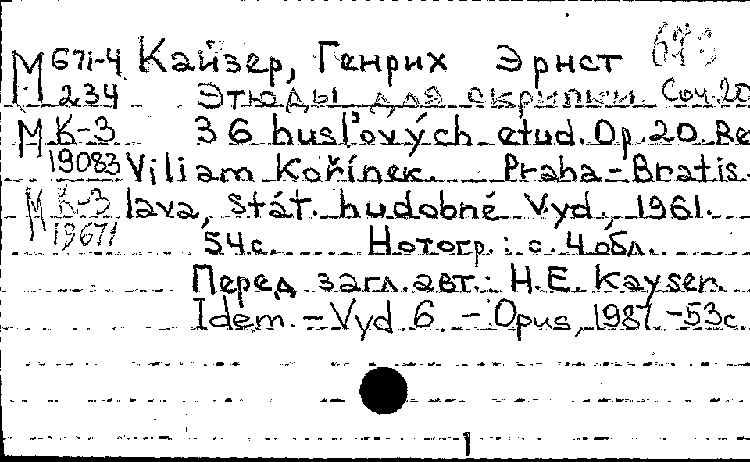 М 671-4 Кайзер, Генрих Эрнст
234 Этюды для скрипки. Соч. 20
М К-3 36 husľových etud. Op. 20. Re
19083 Viliam Kořínek. Praha-Bratis-
М К-3 lava, Stát. hudobné Vyd., 1961.
19671 54 с. Нотогр.: с. 4 обл.
Перед загл. авт.: H.E. Kayser.
Idem. - Vyd 6. - Opus, 1987. -53с.